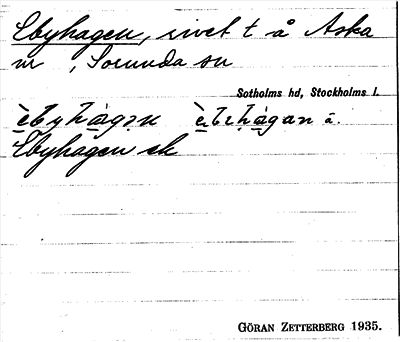 Ebyhagen, rivet t å Aska
nr , Sorunda sn
Sotholms hd, Stockholms l.
è̱byhà̱gɪn è̱bɪhà̱gan ä.
Ebyhagen ek
GÖRAN ZETTERBERG 1935.